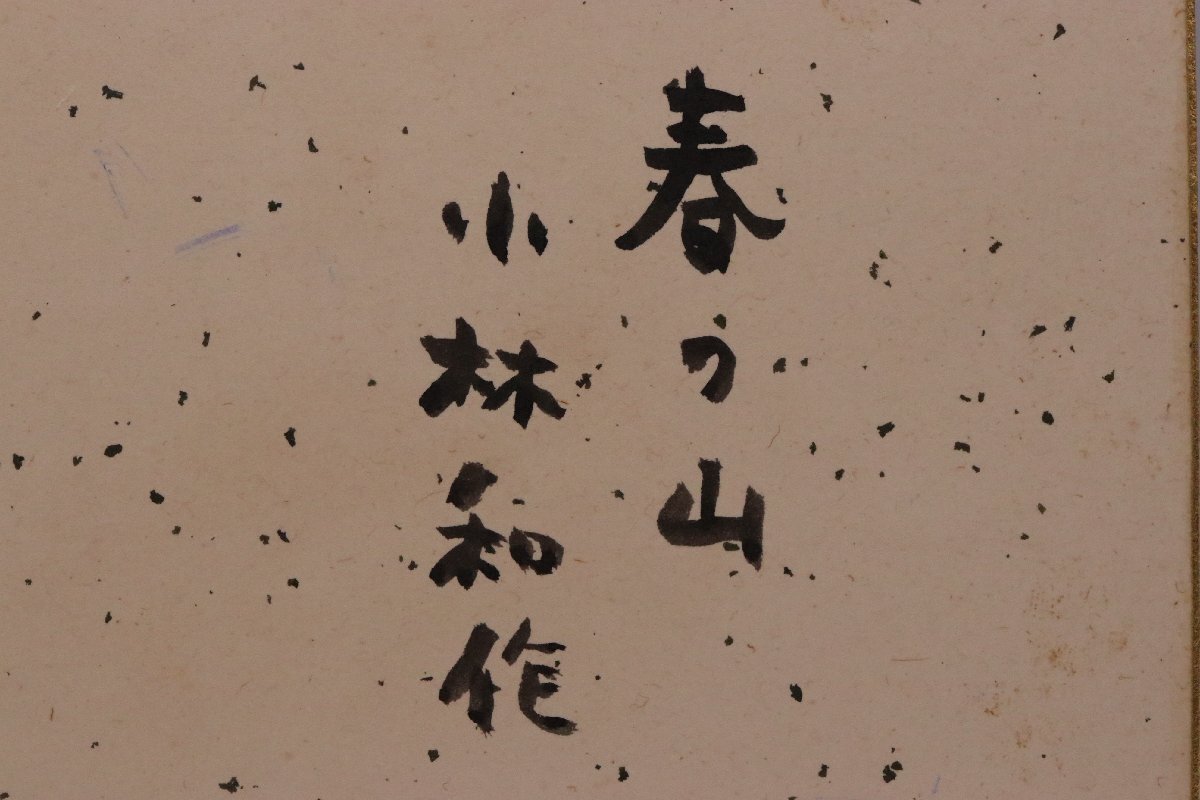 春の山
小林和作